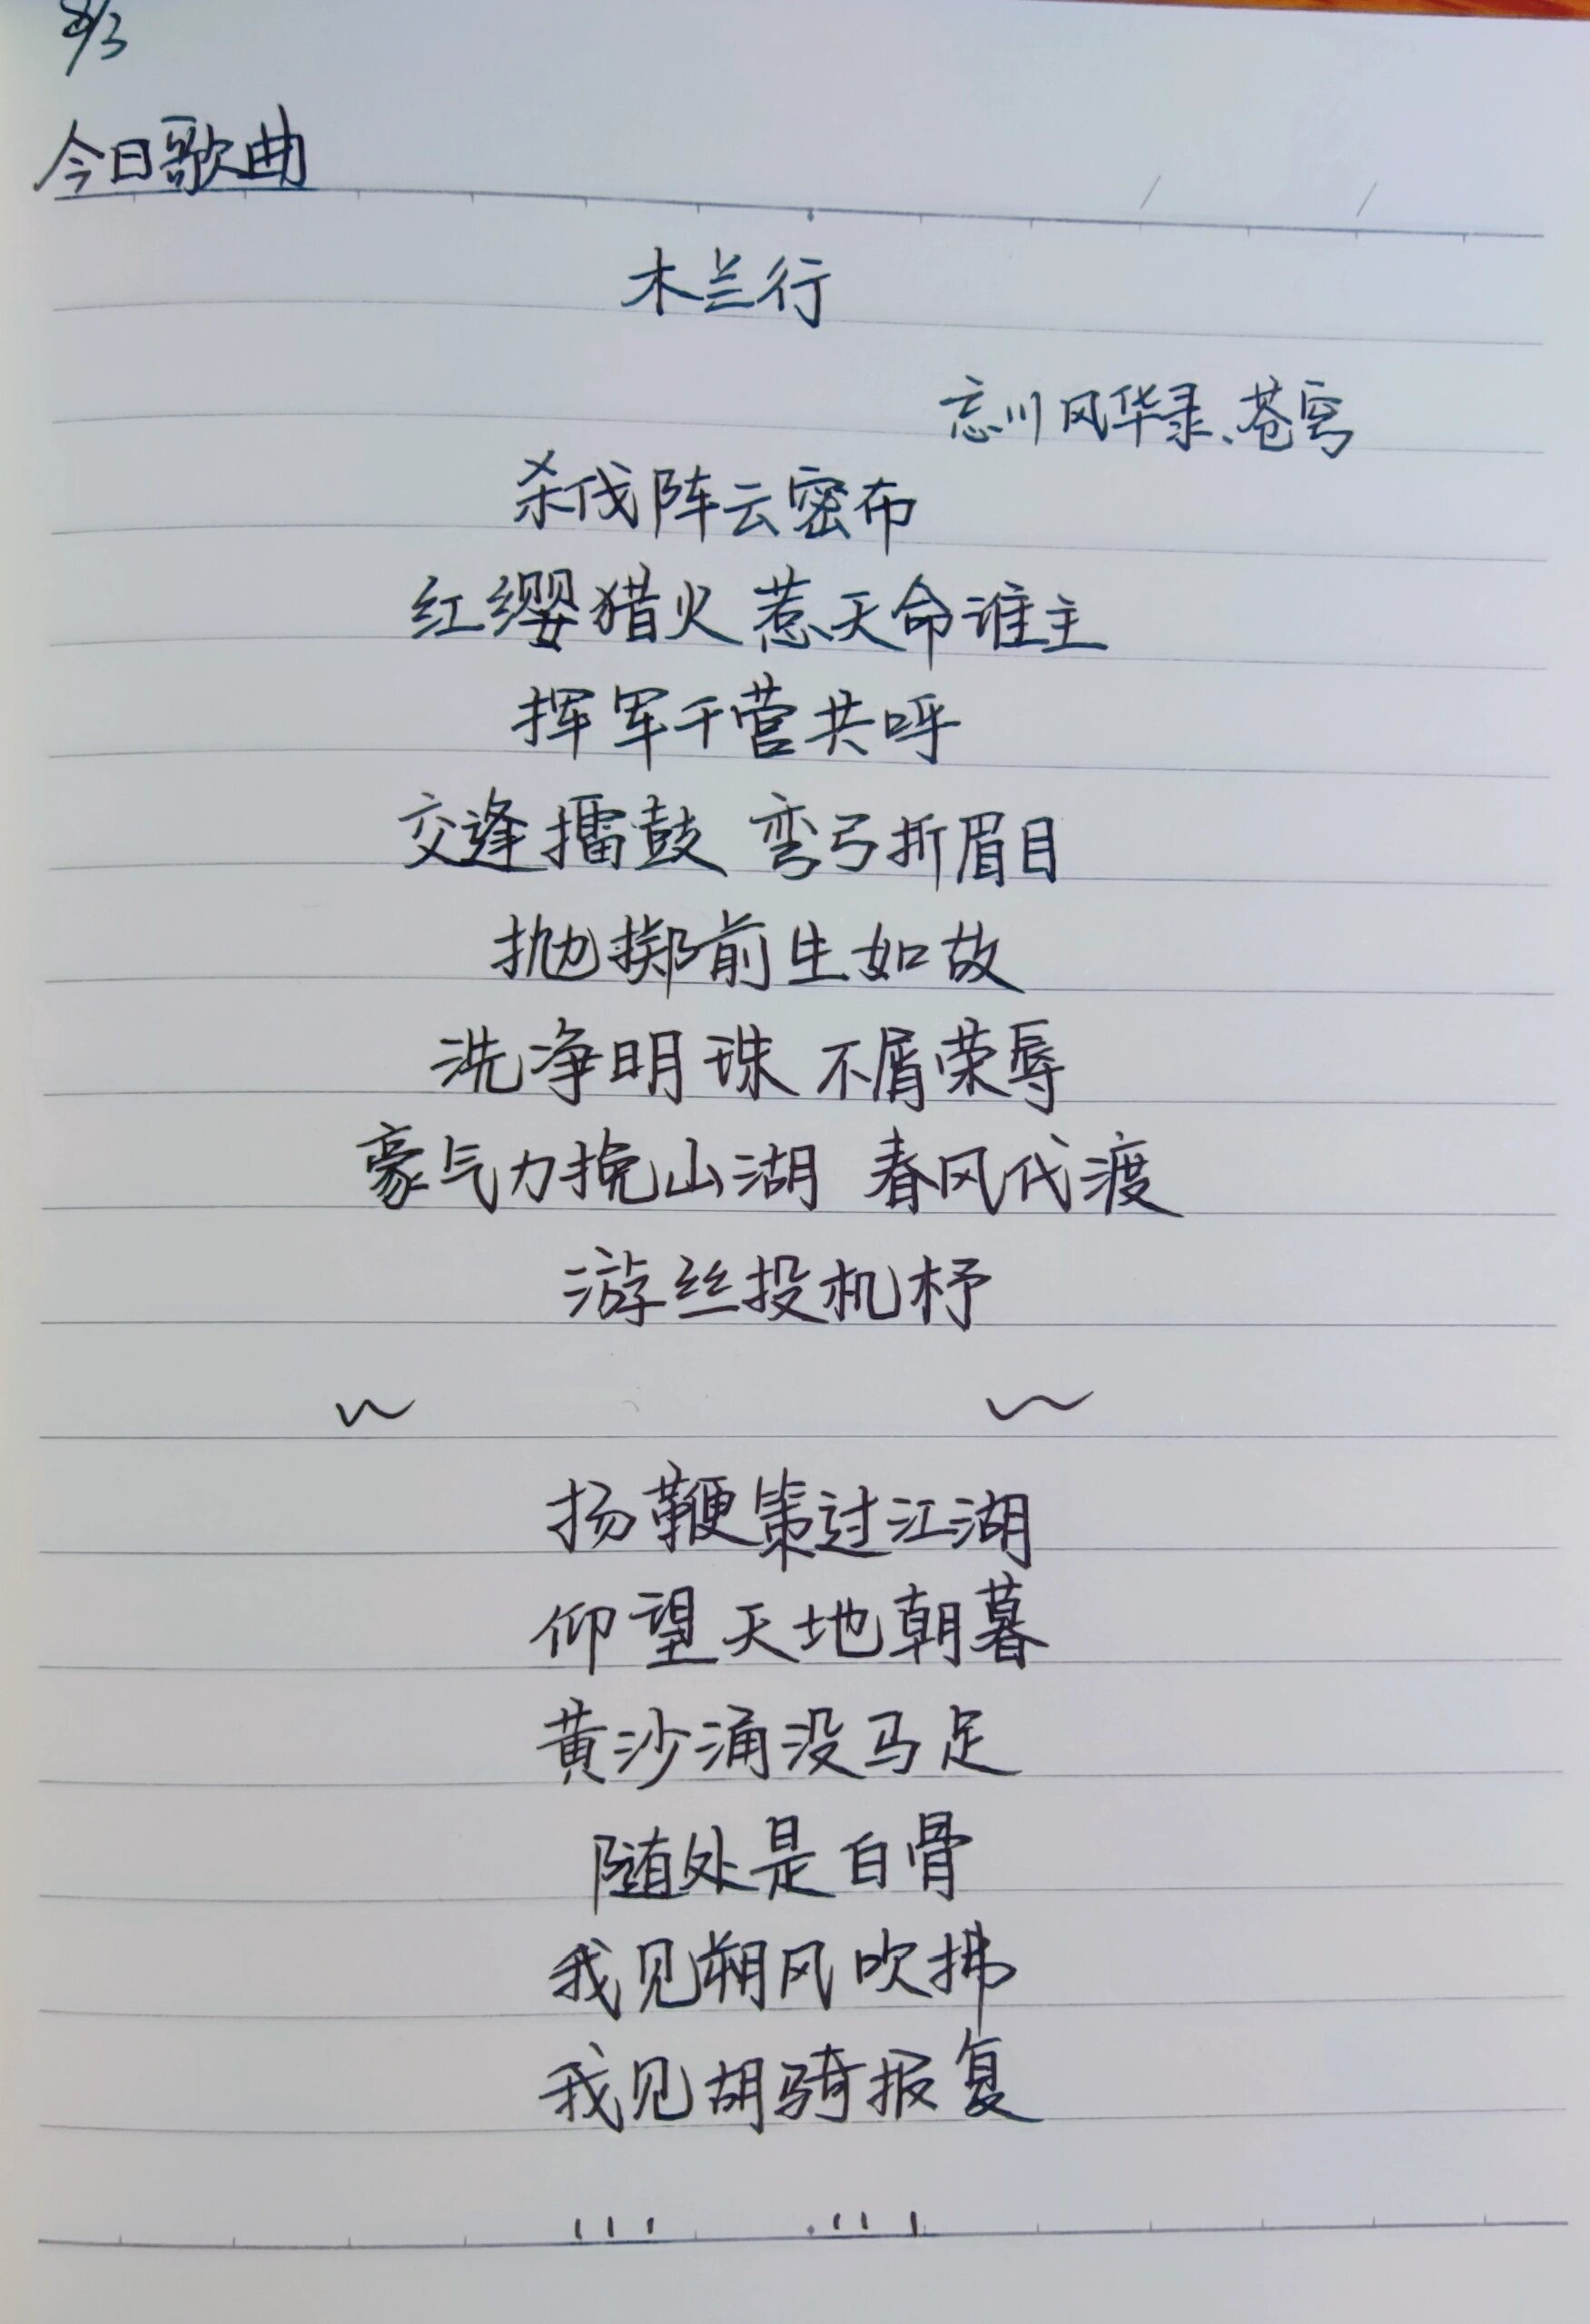 8/3
今日歌曲
木兰行
忘川风华录、苍穹
杀伐阵云密布
红缨猎火 惹天命谁主
挥军千营共呼
交逢擂鼓 弯弓折眉目
抛掷前生如故
洗净明珠 不屑荣辱
豪气力挽山湖 春风代渡
游丝投机杼
~ ~
扬鞭策过江湖
仰望天地朝暮
黄沙涌没马足
随处是白骨
我见朔风吹拂
我见胡骑报复
……